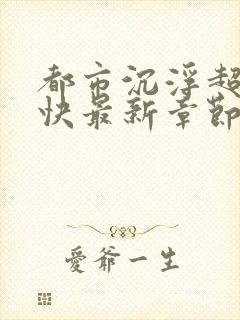 都市沉浮超
快最新章節
愛爺一生